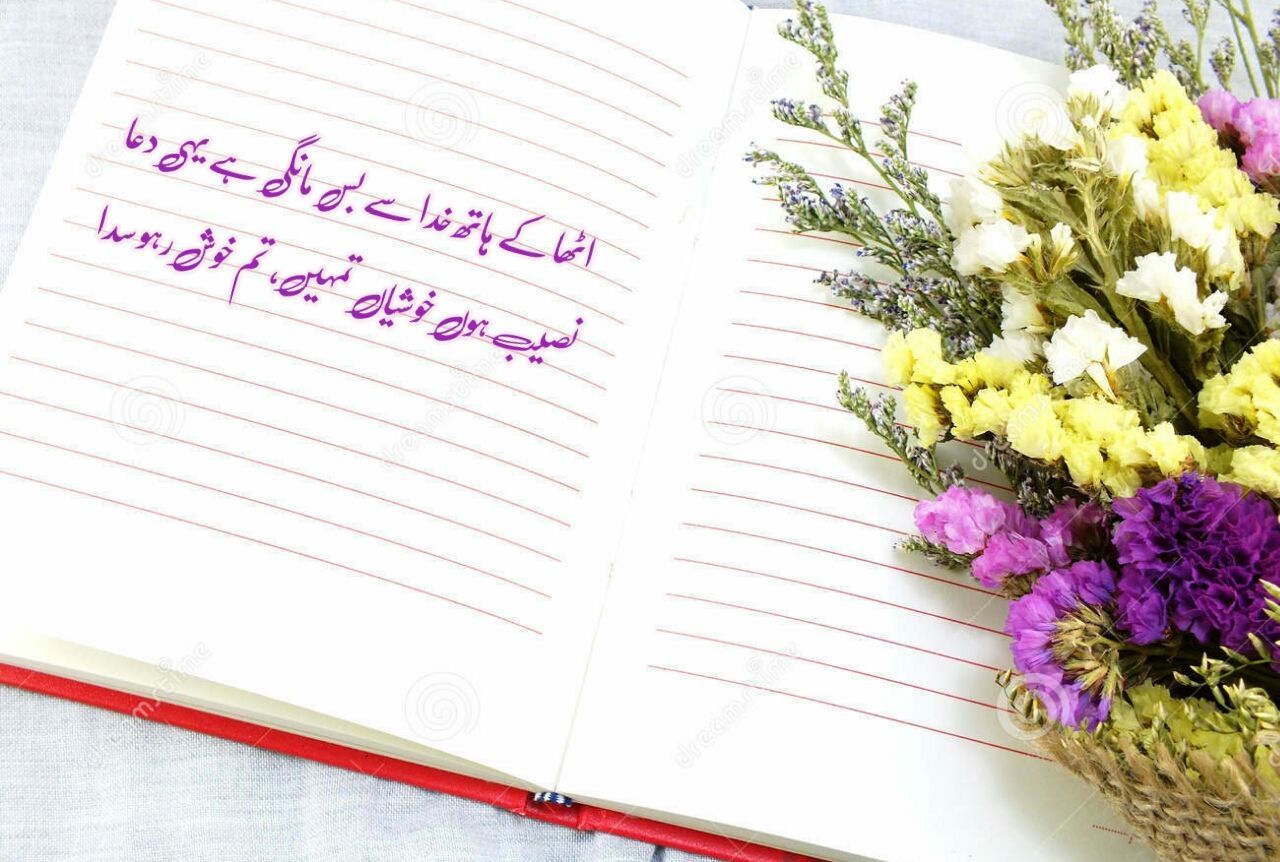 اٹھا کے ہاتھ خدا سے بس مانگی ہے یہی دعا
نصیب ہوں خوشیاں تمہیں، تم خوش رہو سدا
dreamstime